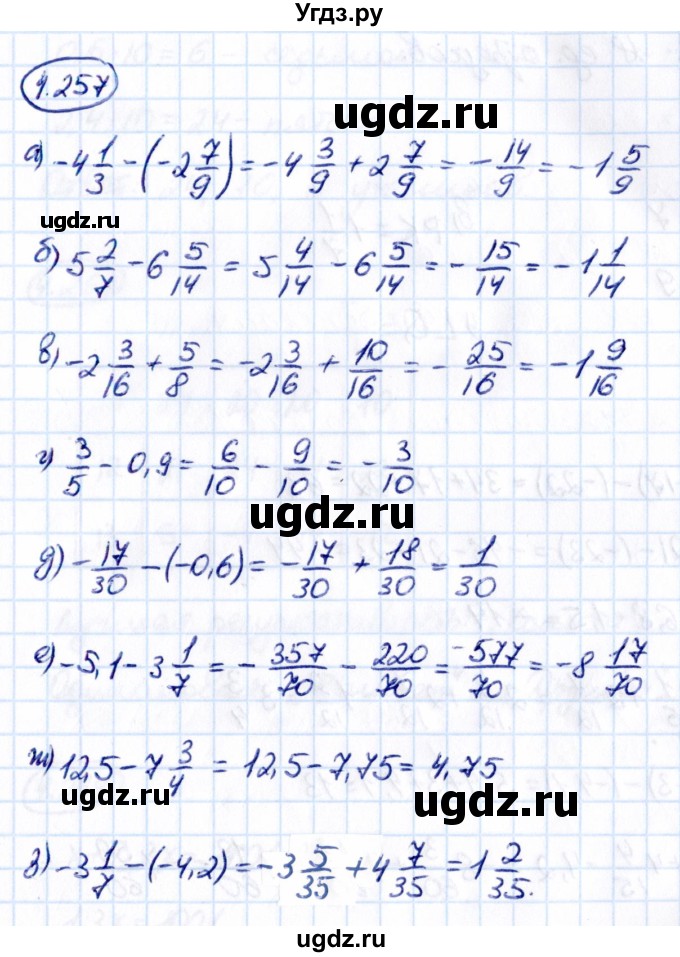 Угдз.ру
1.257
ugdz.ru
а) -4 1/3 - (-2 7/9) = -4 3/9 + 2 7/9 = -14/9 = -1 5/9
ugdz.ru
б) 5 2/7 - 6 5/14 = 5 4/14 - 6 5/14 = -15/14 = -1 1/14
в) -2 3/16 + 5/8 = -2 3/16 + 10/16 = -25/16 = -1 9/16
г) 3/5 - 0,9 = 6/10 - 9/10 = -3/10
ugdz.ru
д) -17/30 - (-0,6) = -17/30 + 18/30 = 1/30
е) -5,1 - 3 1/7 = -357/70 - 220/70 = -577/70 = -8 17/70
ж) 12,5 - 7 3/4 = 12,5 - 7,75 = 4,75
ugdz.ru
ugdz.ru
з) -3 1/7 - (-4,2) = -3 5/35 + 4 7/35 = 1 2/35.
ugdz.ru